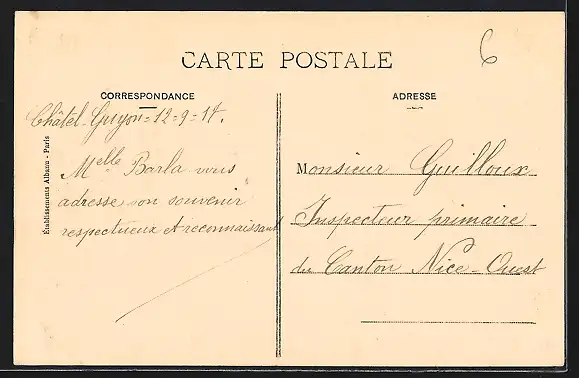 6
CARTE POSTALE
CORRESPONDANCE
ADRESSE
Châtel-Guyon = 12 = 9 = 17.
Melle Barla vous
adresse son souvenir
respectueux et reconnaissant
Monsieur Guilloux
Inspecteur primaire
du Canton Nice-Ouest
Établissements Albano - Paris